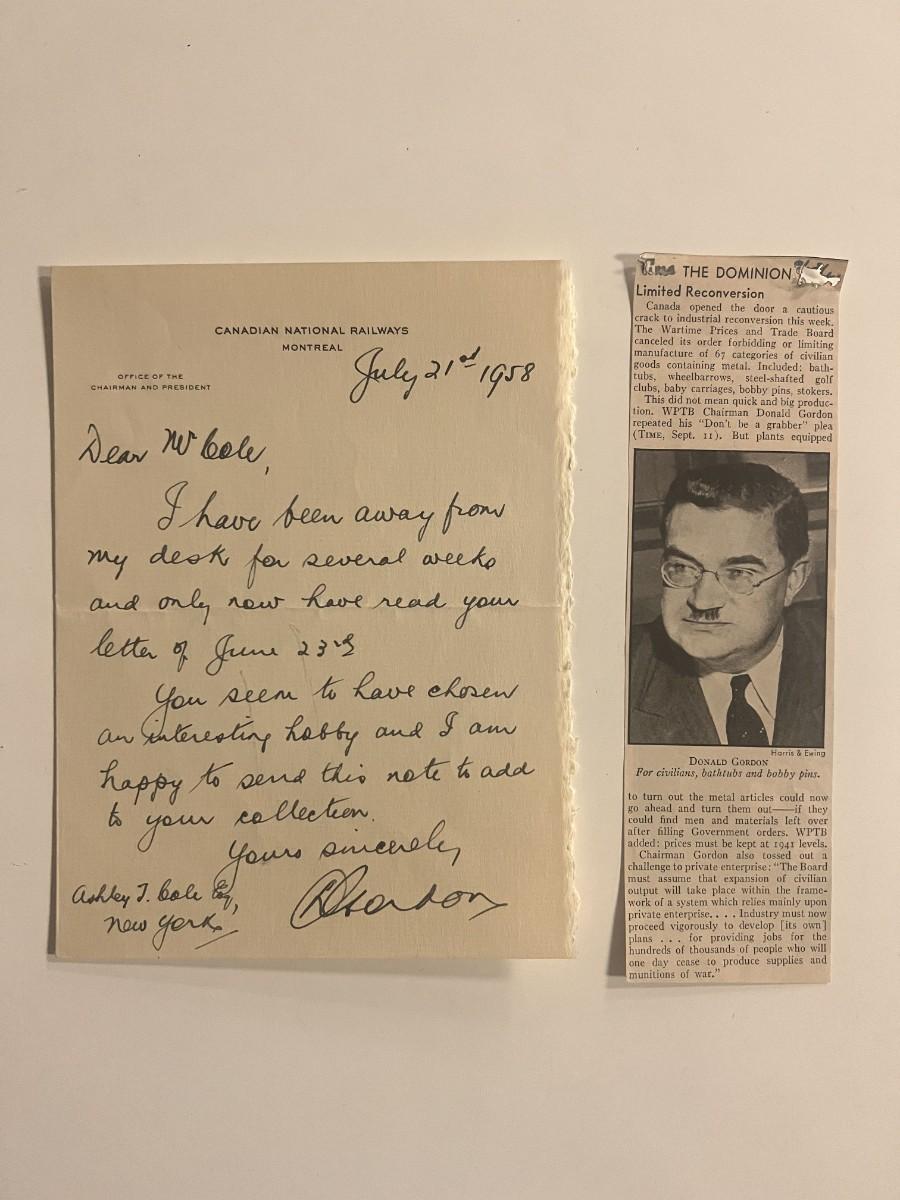 CANADIAN NATIONAL RAILWAYS
MONTREAL
OFFICE OF THE
CHAIRMAN AND PRESIDENT
July 21st 1958
Dear Mr Cole,
I have been away from
my desk for several weeks
and only now have read your
letter of June 23rd
You seem to have chosen
an interesting hobby and I am
happy to send this note to add
to your collection.
Yours sincerely,
DGordon
Ashley T. Cole Esq,
New York.
Time THE DOMINION
Limited Reconversion
Canada opened the door a cautious
crack to industrial reconversion this week.
The Wartime Prices and Trade Board
canceled its order forbidding or limiting
manufacture of 67 categories of civilian
goods containing metal. Included: bath-
tubs, wheelbarrows, steel-shafted golf
clubs, baby carriages, bobby pins, stokers.
This did not mean quick and big produc-
tion. WPTB Chairman Donald Gordon
repeated his "Don't be a grabber" plea
(TIME, Sept. 11). But plants equipped
Harris & Ewing
DONALD GORDON
For civilians, bathtubs and bobby pins.
to turn out the metal articles could now
go ahead and turn them out——if they
could find men and materials left over
after filling Government orders. WPTB
added: prices must be kept at 1941 levels.
Chairman Gordon also tossed out a
challenge to private enterprise: "The Board
must assume that expansion of civilian
output will take place within the frame-
work of a system which relies mainly upon
private enterprise. . . . Industry must now
proceed vigorously to develop [its own]
plans . . . for providing jobs for the
hundreds of thousands of people who will
one day cease to produce supplies and
munitions of war."